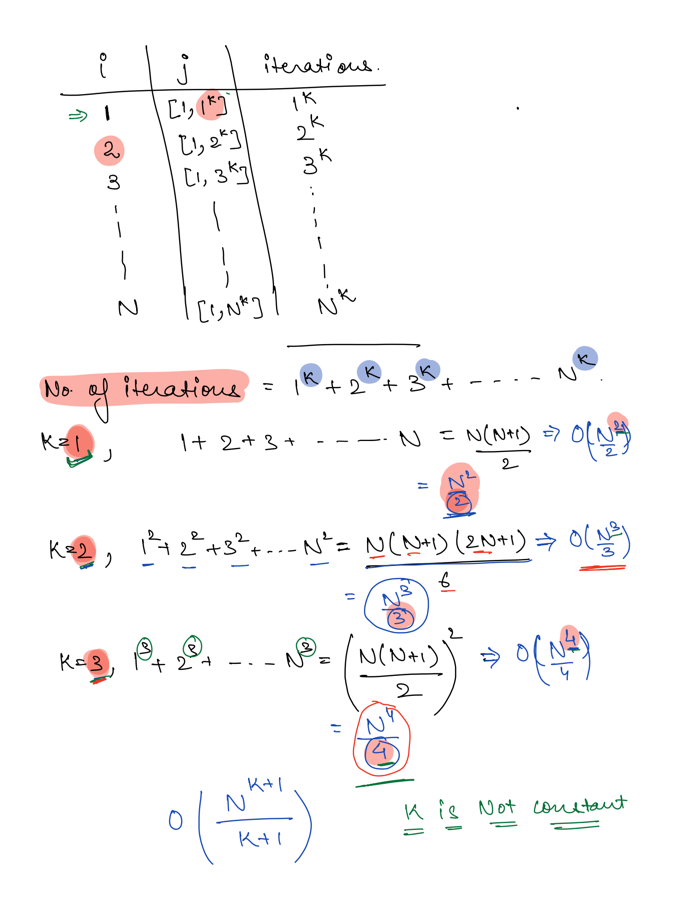 i j iterations.
⇒ 1 [1, 1^K] 1^K
2 [1, 2^K] 2^K
3 [1, 3^K] 3^K
N [1, N^K] N^K
No. of iterations = 1^K + 2^K + 3^K + ----- N^K.
K=1, 1 + 2 + 3 + ----- N = N(N+1)/2 ⇒ O(N^2/2)
= N^2/2
K=2, 1^2 + 2^2 + 3^2 + --- N^2 = N(N+1)(2N+1)/6 ⇒ O(N^3/3)
= N^3/3
K=3, 1^3 + 2^3 + --- N^3 = (N(N+1)/2)^2 ⇒ O(N^4/4)
= N^4/4
O(N^(K+1)/(K+1)) K is Not constant